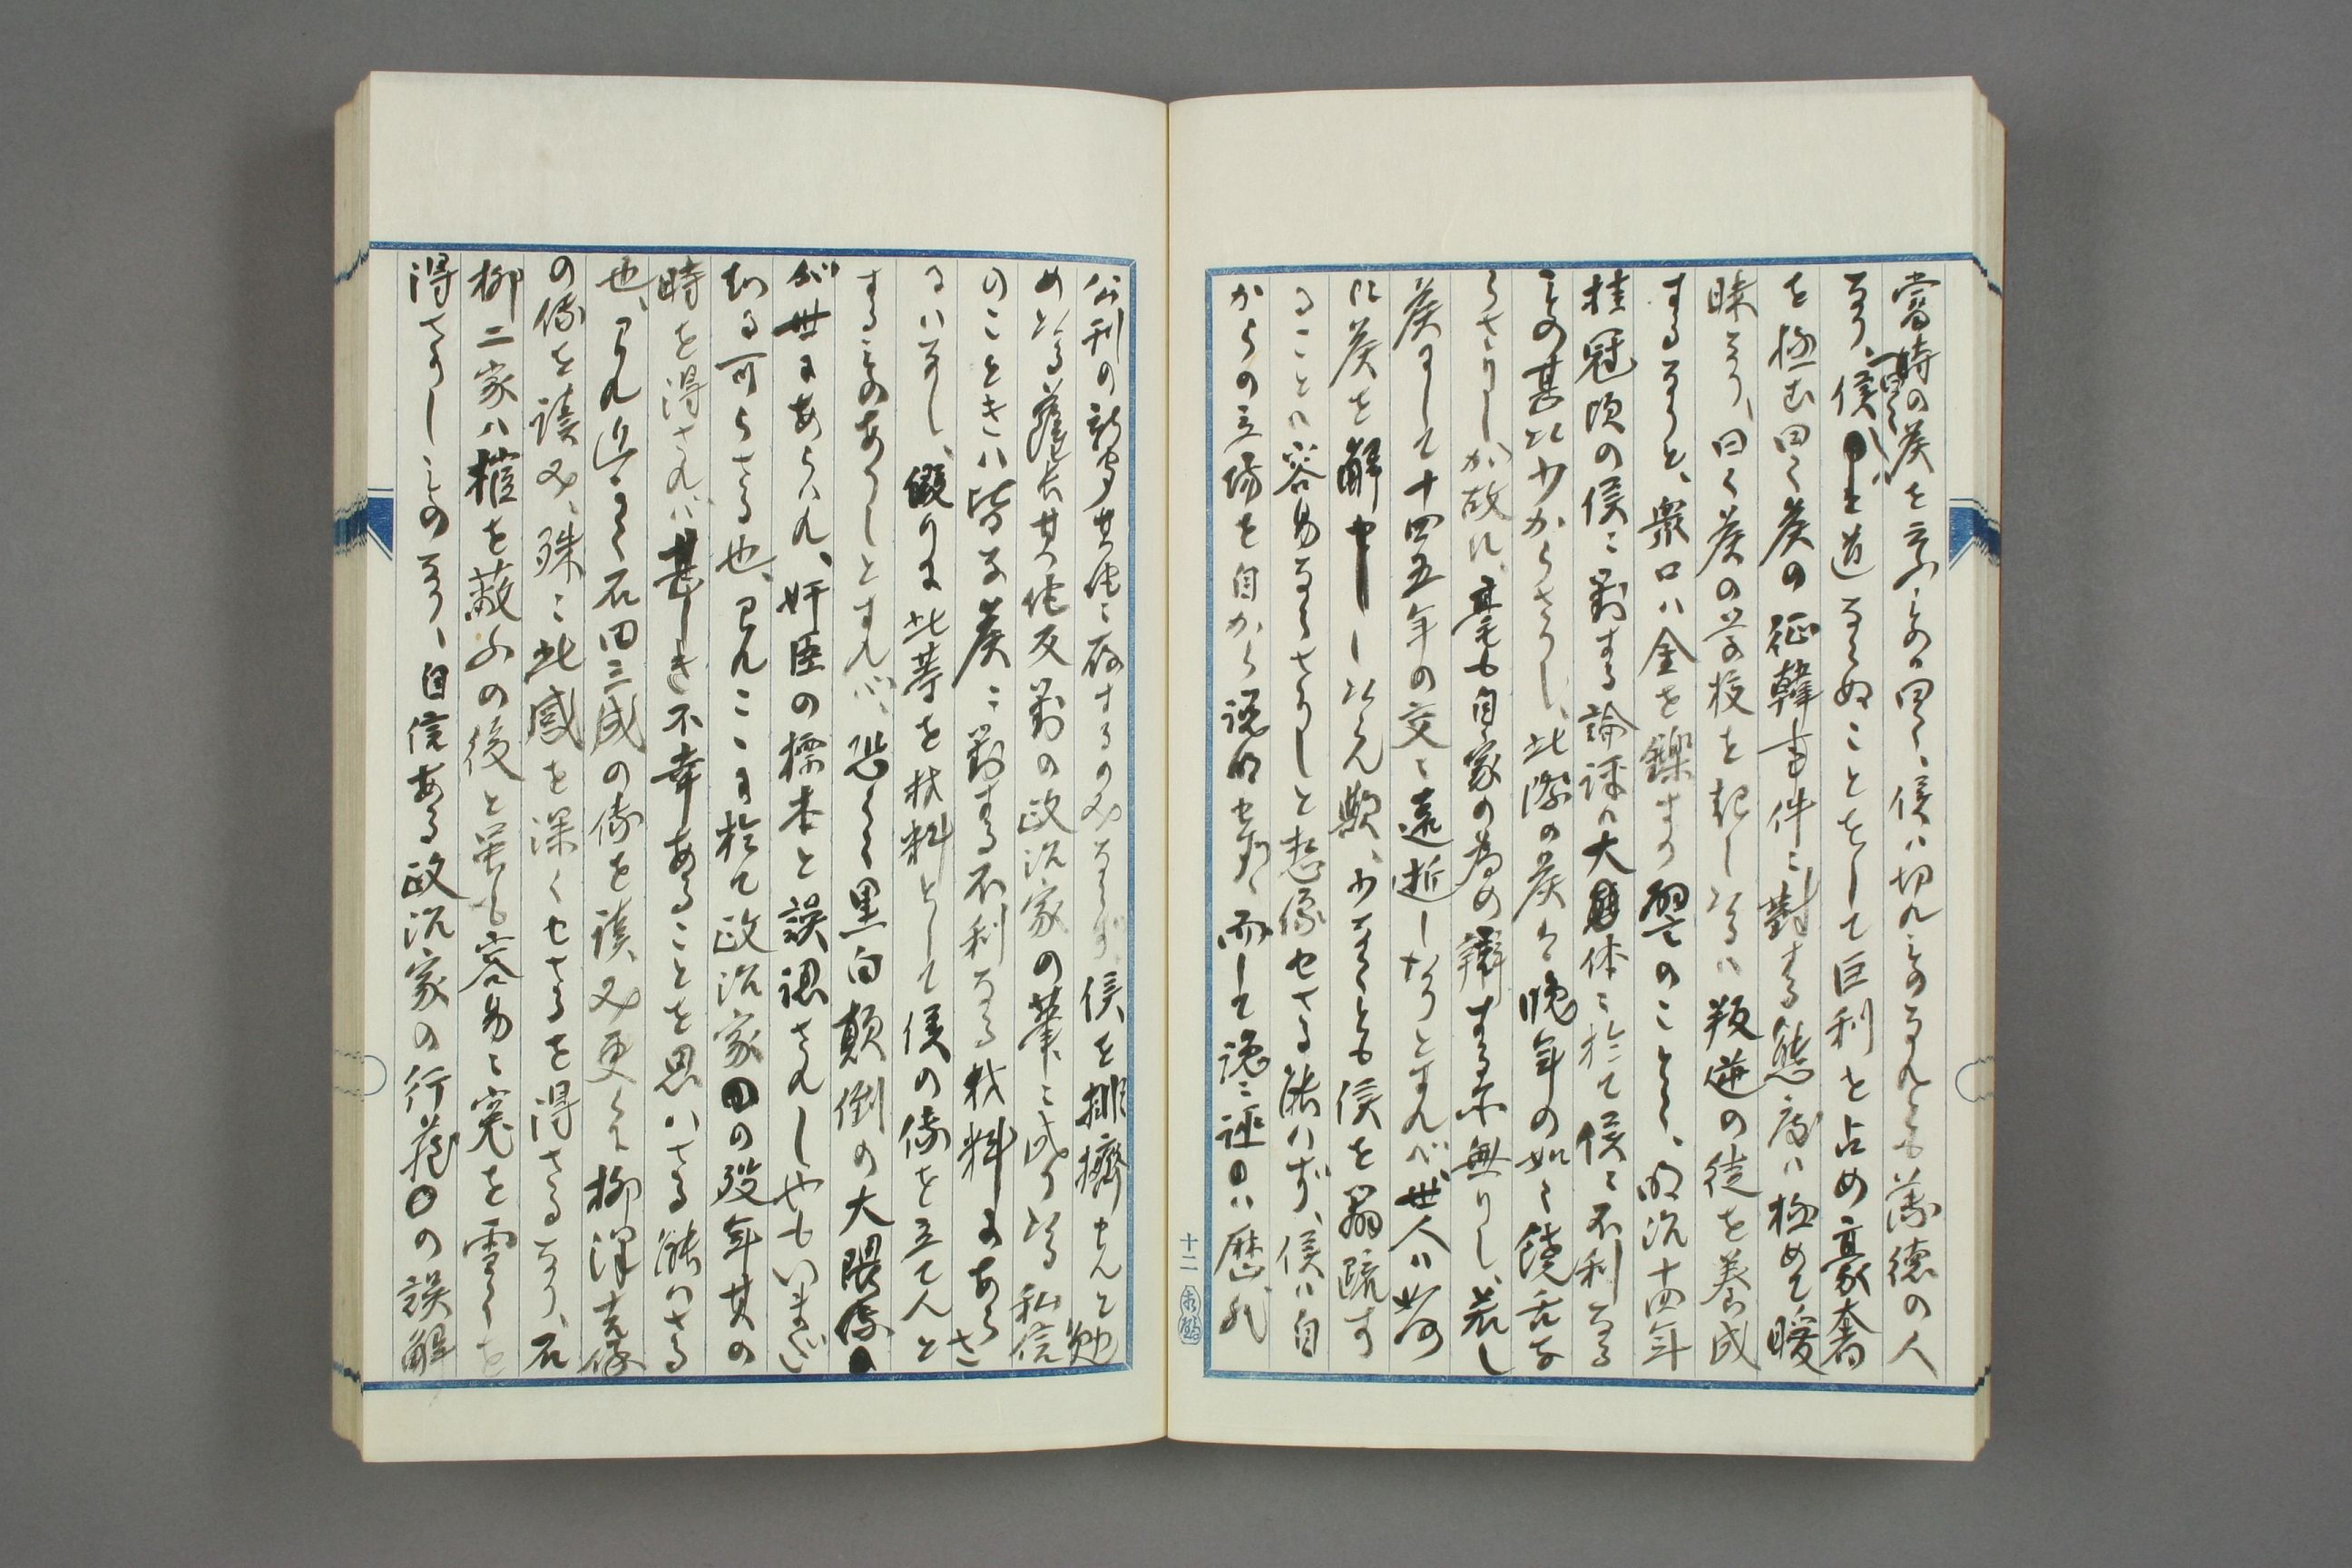 當時の侯を云ふもの曰く、侯ハ切れものなれとも薄徳の人
なり、曰く侯ハ道ならぬことをして巨利を占め豪奢
を極む曰く侯の征韓事件ニ對する態度ハ極めて曖
昧なり、曰く侯の学校を起しゝハ叛逆の徒を養成
するなりと、衆口ハ金を鑠すの譬のことく、明治十四年
桂冠頃の侯ニ對する論評ハ大体ニ於て侯ニ不利なる
もの甚た少からさりし、此際の侯ハ晩年の如く饒舌な
らさりしか故に、毫も自家の為め辯する所無りし、若し
侯にして十四五年の交ニ遠逝しなりとすれば、世人ハ
に侯を解せし歟、少なくとも侯を
ることハ容易ならさりしと想像せさる能ハず、侯ハ自
からの立場を自から説明せり、而して讒誣ハ歴代
公刊の新聞其他ニ存するのみならず侯を排擠せんと勉
めたる薩長其他反對の政治家の筆ニ成りたる私信
のことき皆な侯ニ對する不利なる材料にあらさ
るハなし、假りに此等を材料として侯の傳を立て人と
するものありしとすれバ、恐らく黒白顛倒の大隈傳
が世にあらハれ、奸臣の標本と誤認されしやもいまだ
知る可らさる也、われこゝに於て政治家の歿年其の
時を得されハ甚しき不幸あることを思ハさる能ハさる
也、われ近く石田三成の傳を讀み更らに柳澤吉保
の傳を讀み、殊ニ此感を深くせさるを得さるなり、石
柳二家ハ權を蔽ふの後と雖も容易ニ寃を雪くを
得さりしものなり、自信ある政治家の行蔵の誤解
十二